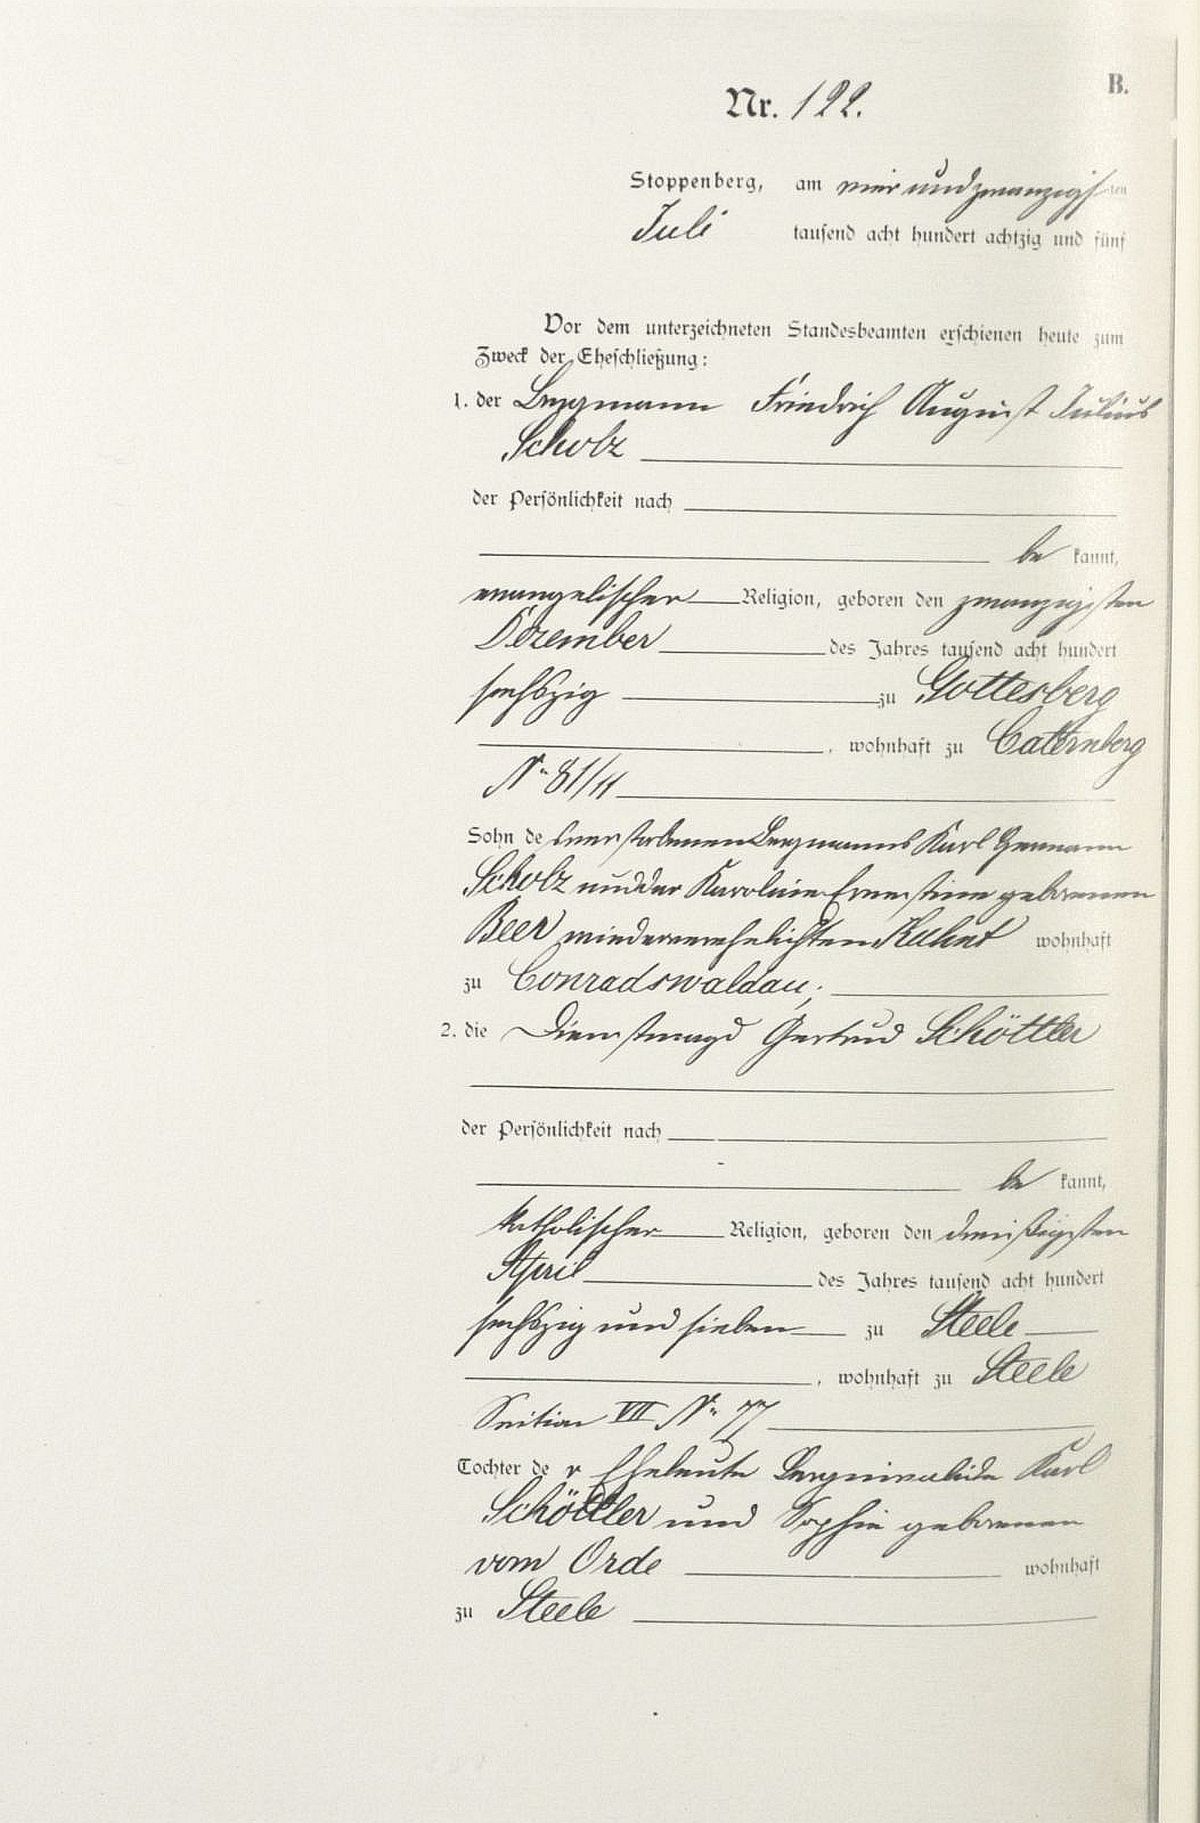 B.
Nr. 122.
Stoppenberg, am vier und zwanzigsten
Juli tausend acht hundert achtzig und fünf
Vor dem unterzeichneten Standesbeamten erschienen heute zum
Zweck der Eheschließung:
1. der Bergmann Friedrich August Julius
Scholz
der Persönlichkeit nach
be kannt,
evangelischer Religion, geboren den zwanzigsten
Dezember des Jahres tausend acht hundert
sechszig zu Gottesberg
, wohnhaft zu Caternberg
No 81/11
Sohn des verstorbenen Bergmanns Karl Hermann
Scholz und der Karoline Ernestine geborenen
Beer wiederverehelichten Kuhnt wohnhaft
zu Conradswaldau;
2. die Dienstmagd Gertrud Schöttler
der Persönlichkeit nach
be kannt,
katholischer Religion, geboren den dreißigsten
April des Jahres tausend acht hundert
sechszig und sieben zu Steele
, wohnhaft zu Steele
Section VII No 77
Tochter de r Eheleute Berginvalide Karl
Schöttler und Sophie geborenen
vom Orde wohnhaft
zu Steele